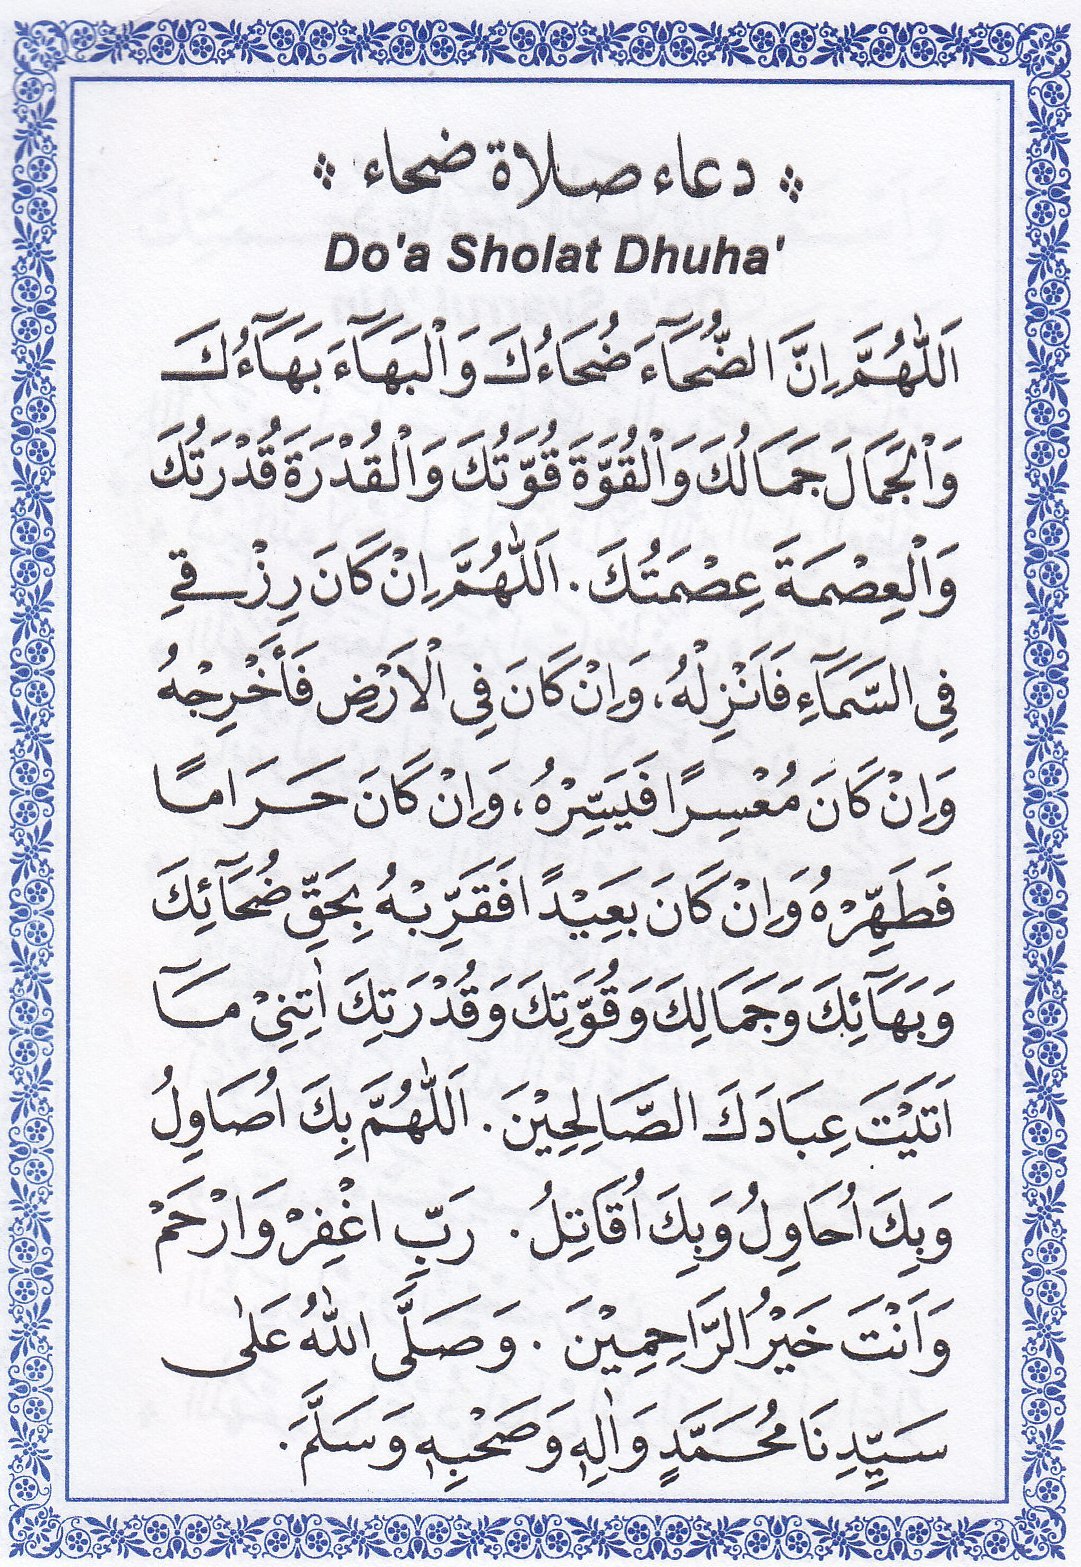 دعاء صلاة ضحاء
Do'a Sholat Dhuha'
اَللّٰهُمَّ اِنَّ الضُّحَآءَ ضُحَاءُكَ وَالْبَهَآءَ بَهَآءُكَ
وَالْجَمَالَ جَمَالُكَ وَالْقُوَّةَ قُوَّتُكَ وَالْقُدْرَةَ قُدْرَتُكَ
وَالْعِصْمَةَ عِصْمَتُكَ. اَللّٰهُمَّ اِنْ كَانَ رِزْقِي
فِي السَّمَآءِ فَاَنْزِلْهُ، وَاِنْ كَانَ فِي الْاَرْضِ فَأَخْرِجْهُ
وَاِنْ كَانَ مُعْسِرًا فَيَسِّرْهُ، وَاِنْ كَانَ حَرَامًا
فَطَهِّرْهُ وَاِنْ كَانَ بَعِيْدًا فَقَرِّبْهُ بِحَقِّ ضُحَآئِكَ
وَبَهَآئِكَ وَجَمَالِكَ وَقُوَّتِكَ وَقُدْرَتِكَ اٰتِنِيْ مَآ
اَتَيْتَ عِبَادَكَ الصَّالِحِيْنَ. اَللّٰهُمَّ بِكَ اُصَاوِلُ
وَبِكَ اُحَاوِلُ وَبِكَ اُقَاتِلُ. رَبِّ اغْفِرْ وَارْحَمْ
وَاَنْتَ خَيْرُ الرَّاحِمِيْنَ. وَصَلَّى اللّٰهُ عَلٰى
سَيِّدِنَا مُحَمَّدٍ وَاٰلِهٖ وَصَحْبِهٖ وَسَلَّمَ.